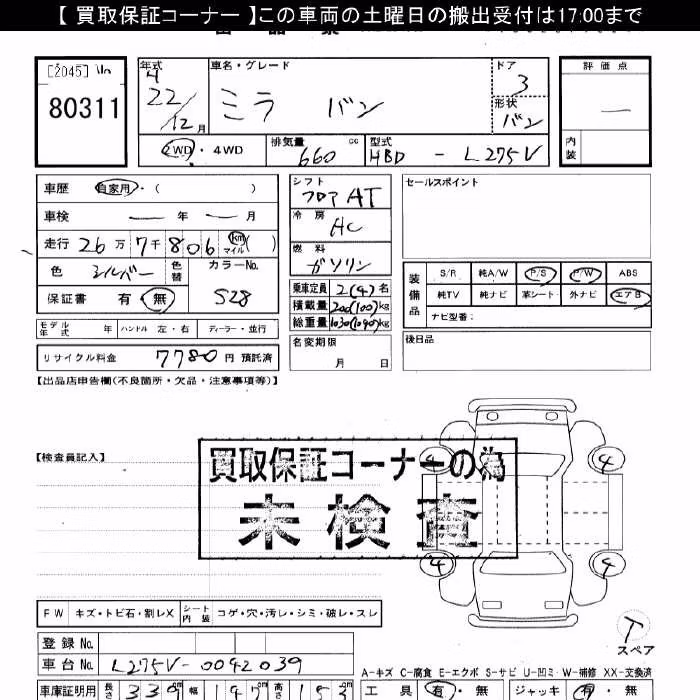 【 買取保証コーナー 】この車両の土曜日の搬出受付は17:00まで
[2045]
80311
年式 車名・グレード ドア 評価点
4
22/12月 ミラ バン 3 —
形状 バン
2WD・4WD 排気量 660 cc 型式 HBD - L275V 内装
車歴 自家用・( )
車検 — 年 — 月
走行 26万7千806 km マイル ( )
色 シルバー 色替 カラーNo.
保証書 有・無 S28
シフト フロア AT
冷房 AC
燃料 ガソリン
乗車定員 2(4)名
積載量 200(100)kg
総重量 1030(1090)kg
セールスポイント
装備品 S/R 純A/W P/S P/W ABS
純TV 純ナビ 革シート 外ナビ エアB
ナビ型番:
モデル年式 年 ハンドル 左・右 ディーラー・並行
リサイクル料金 7780 円 預託済
名変期限 月 日
後日品
【出品店申告欄(不良箇所・欠品・注意事項等)】
【検査員記入】
買取保証コーナーの為
未検査
4 4
4 4
T
スペア
FW キズ・トビ石・割レX シート内装 コゲ・穴・汚レ・シミ・破レ・スレ
登録 No.
車台 No. L275V-0042039
A-キズ C-腐食 E-エクボ S-サビ U-凹ミ W-補修 XX-交換済
車庫証明用 長さ 339cm 幅 147cm 高さ 153cm 工具 有・無 ジャッキ 有・無